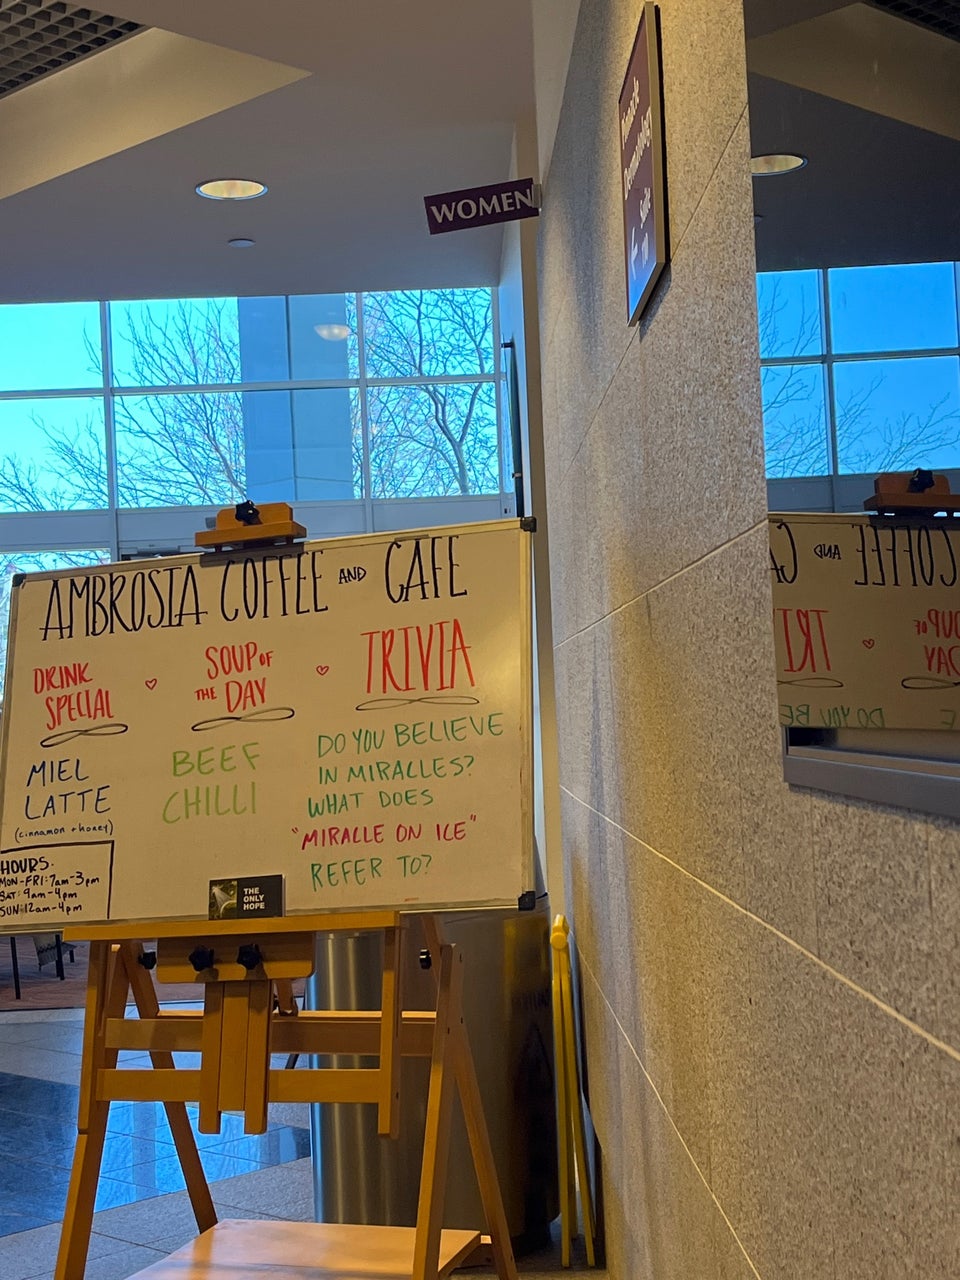 WOMEN
Pinnacle
Dermatology
Suite
710
AMBROSIA COFFEE AND CAFE
DRINK
SPECIAL
MIEL
LATTE
(cinnamon + honey)
HOURS.
MON-FRI: 7am-3pm
SAT: 9am-4pm
SUN: 12am-4pm
SOUP OF
THE DAY
BEEF
CHILLI
TRIVIA
DO YOU BELIEVE
IN MIRACLES?
WHAT DOES
"MIRACLE ON ICE"
REFER TO?
THE
ONLY
HOPE
COFFEE AND CA
SOUP OF
DAY
TRI
E
DO YOU BE